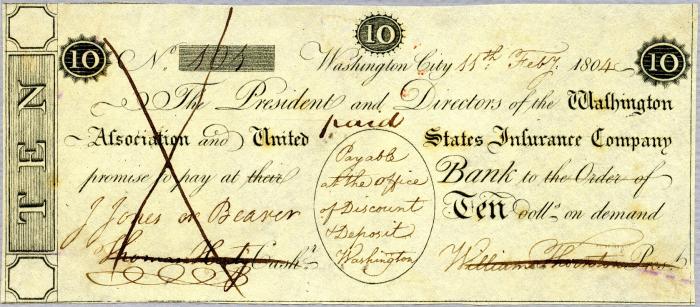 TEN
10 10 10
No. 101 Washington City 11th Feby. 1804
The President and Directors of the Washington
Association and United States Insurance Company
paid
promise to pay at their Bank to the Order of
J Jones or Bearer TEN doll.s on demand
Payable
at the office
of Discount
& Deposit
Washington
Cash.r William Thornton Pres.t